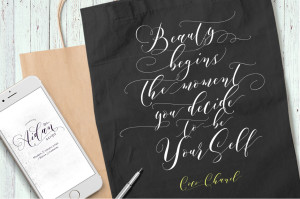 Beauty
begins
The moment
you decide
to be
Your Self
Coco Chanel
Aidan